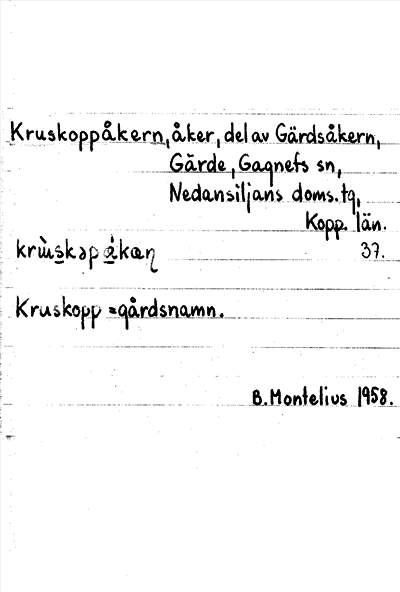 Kruskoppåkern, åker, del av Gärdsåkern,
Gärde, Gagnefs sn,
Nedansiljans doms.tg,
Kopp. län.
37.
Kruskopp = gårdsnamn.
B. Montelius 1958.